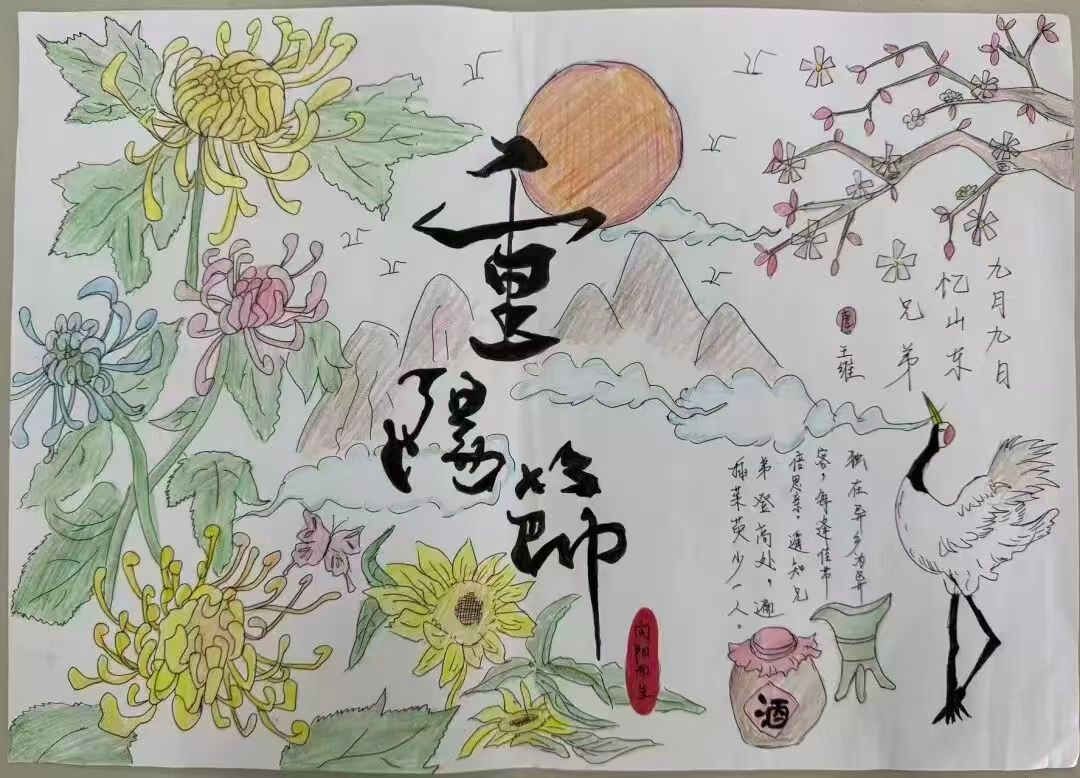 重陽節
九月九日
忆山东
兄弟
唐 王维
独在异乡为异
客，每逢佳节
倍思亲。遥知兄
弟登高处，遍
插茱萸少一人。
向阳而生
酒